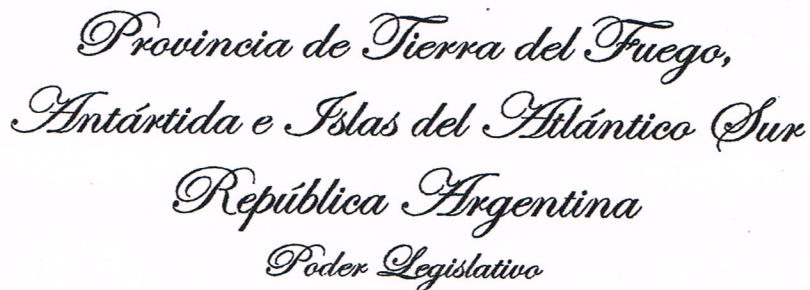 Provincia de Tierra del Fuego,
Antártida e Islas del Atlántico Sur
República Argentina
Poder Legislativo